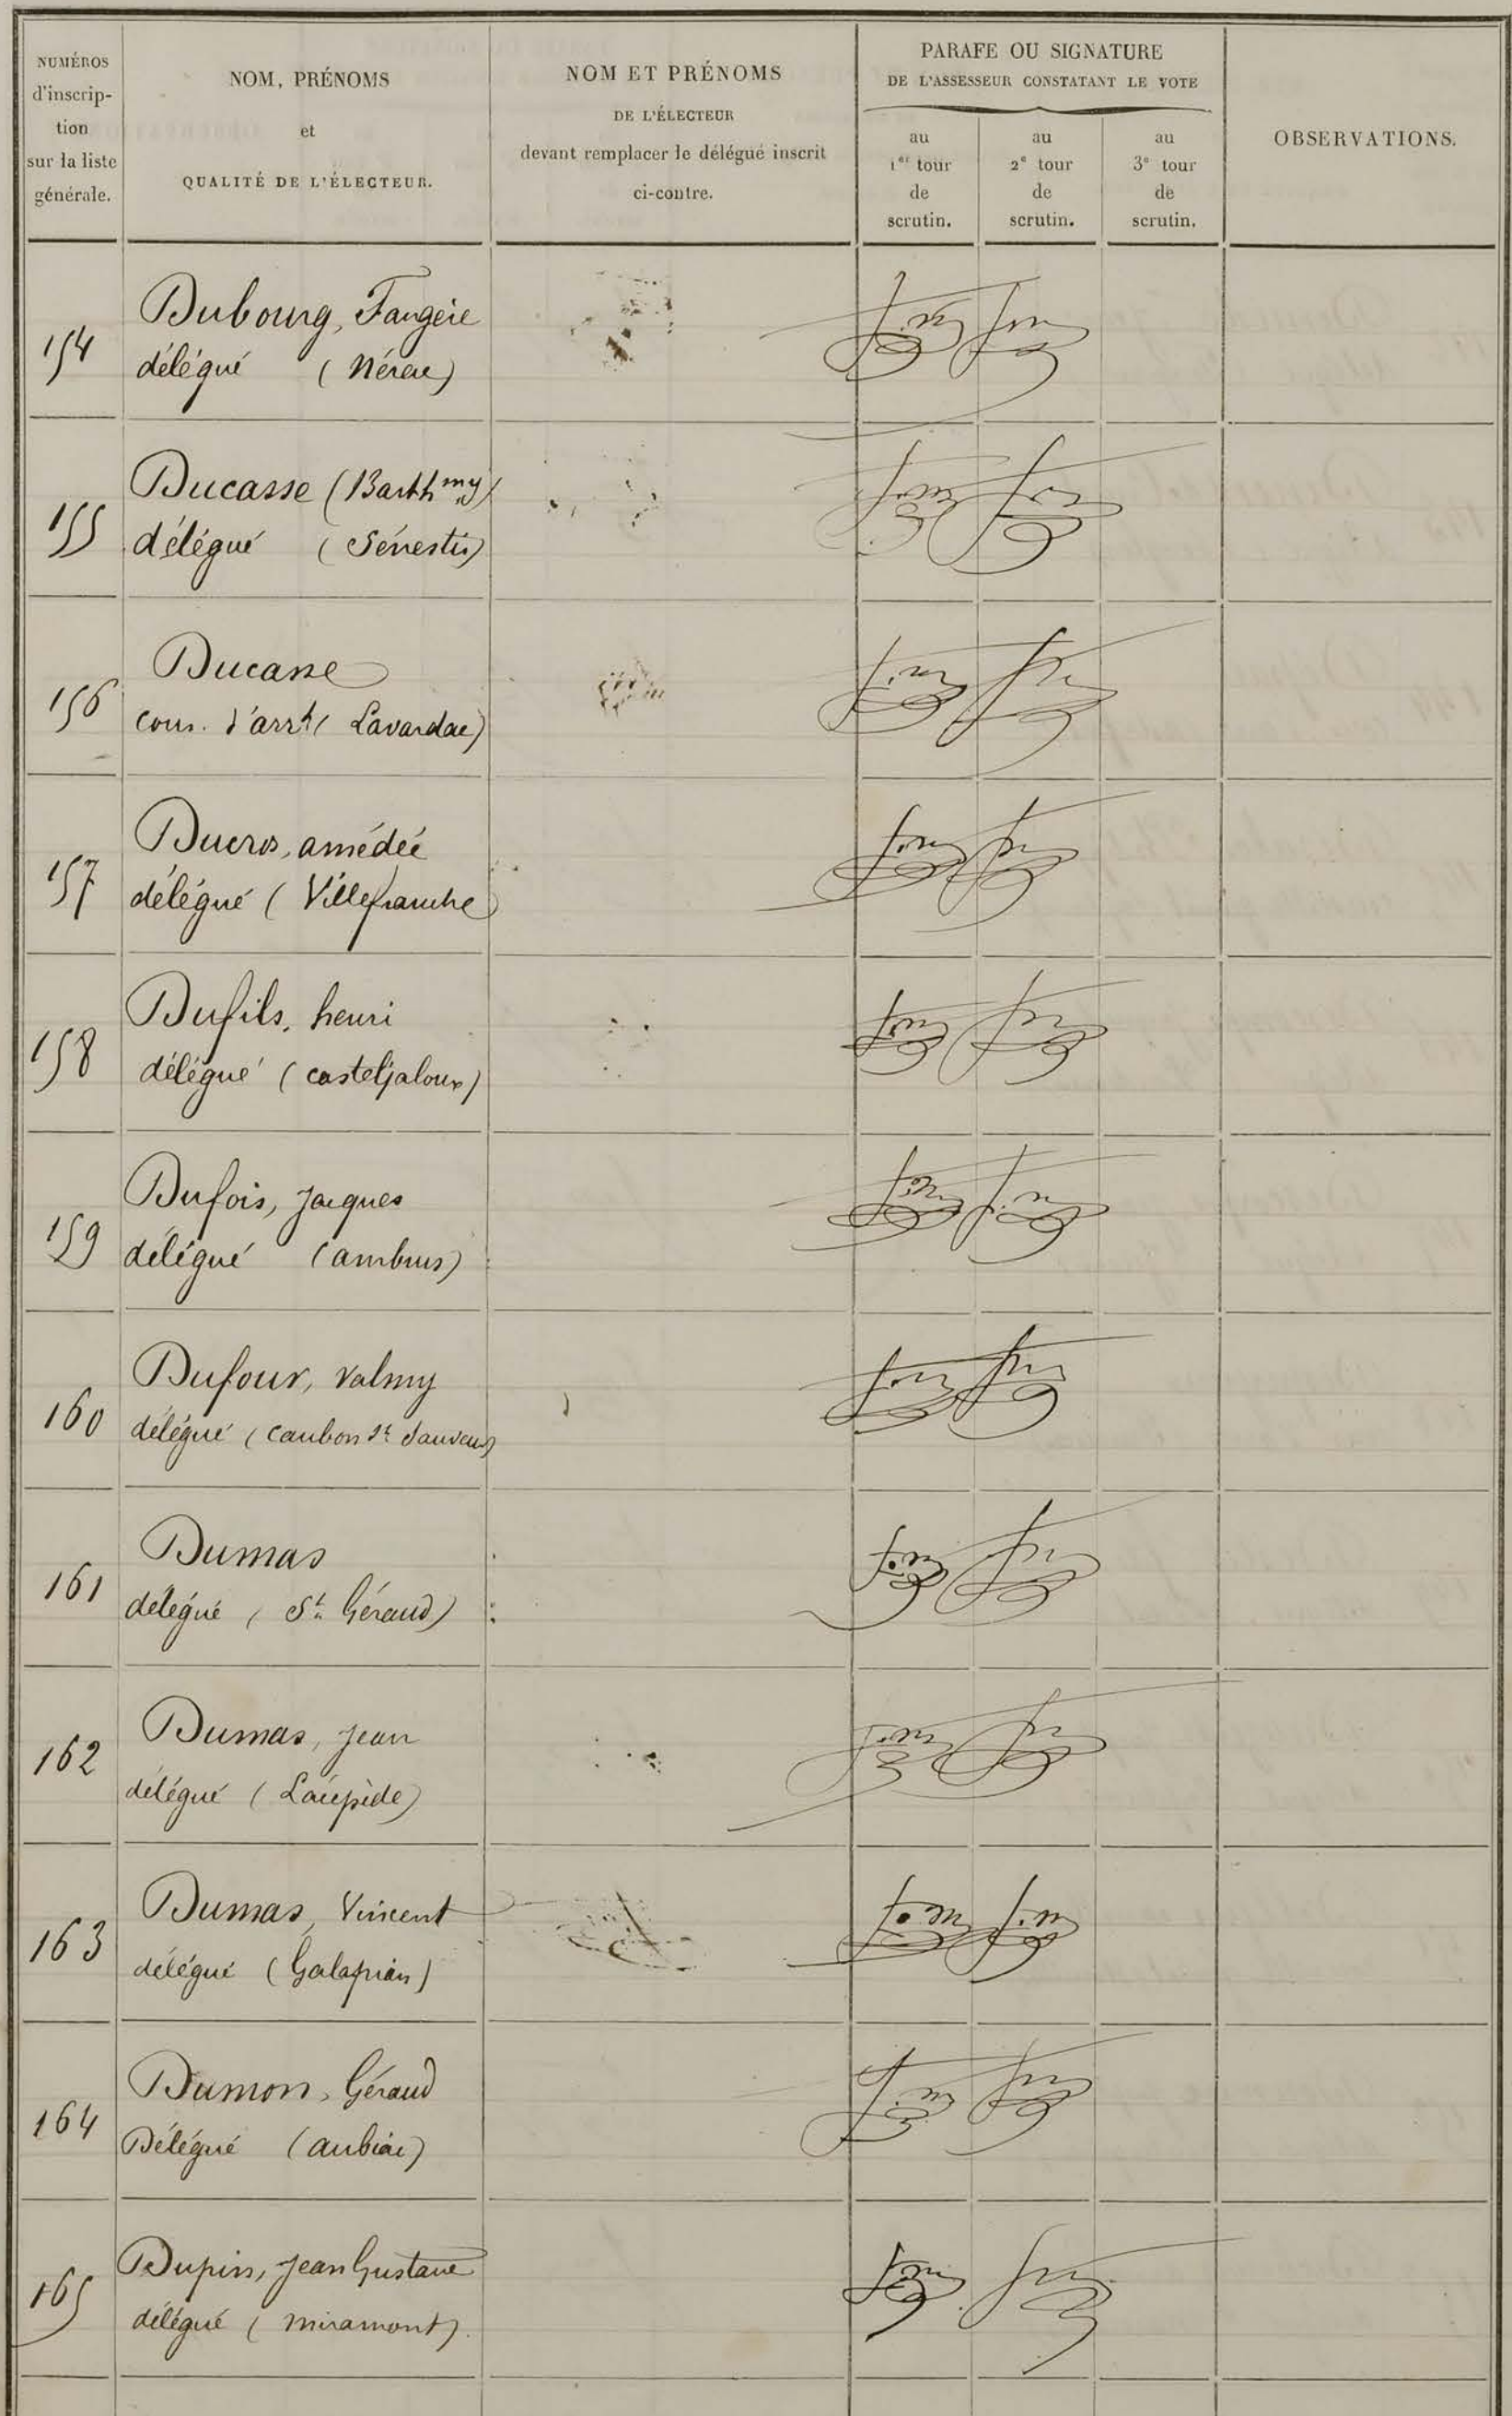 NUMÉROS
d'inscrip-
tion
sur la liste
générale.
NOM, PRÉNOMS
et
QUALITÉ DE L'ÉLECTEUR.
NOM ET PRÉNOMS
DE L'ÉLECTEUR
devant remplacer le délégué inscrit
ci-contre.
PARAFE OU SIGNATURE
DE L'ASSESSEUR CONSTATANT LE VOTE
au
1er tour
de
scrutin.
au
2e tour
de
scrutin.
au
3e tour
de
scrutin.
OBSERVATIONS.
154
Dubourg, Faugère
délégué (Nérac)
155
Ducasse (Barthmy)
délégué (Sénestis)
156
Ducasse
cons. d'arrt (Lavardac)
157
Ducros, amédée
délégué (Villefranche)
158
Dufils, henri
délégué (casteljaloux)
159
Dufois, Jacques
délégué (ambrus)
160
Dufour, Valmy
délégué (Caubon St Sauveur)
161
Dumas
délégué (St Géraud)
162
Dumas, Jean
délégué (Lacépède)
163
Dumas, Vincent
délégué (Galapian)
164
Dumon, Géraud
Délégué (aubiac)
165
Dupin, Jean Gustave
délégué (miramont).